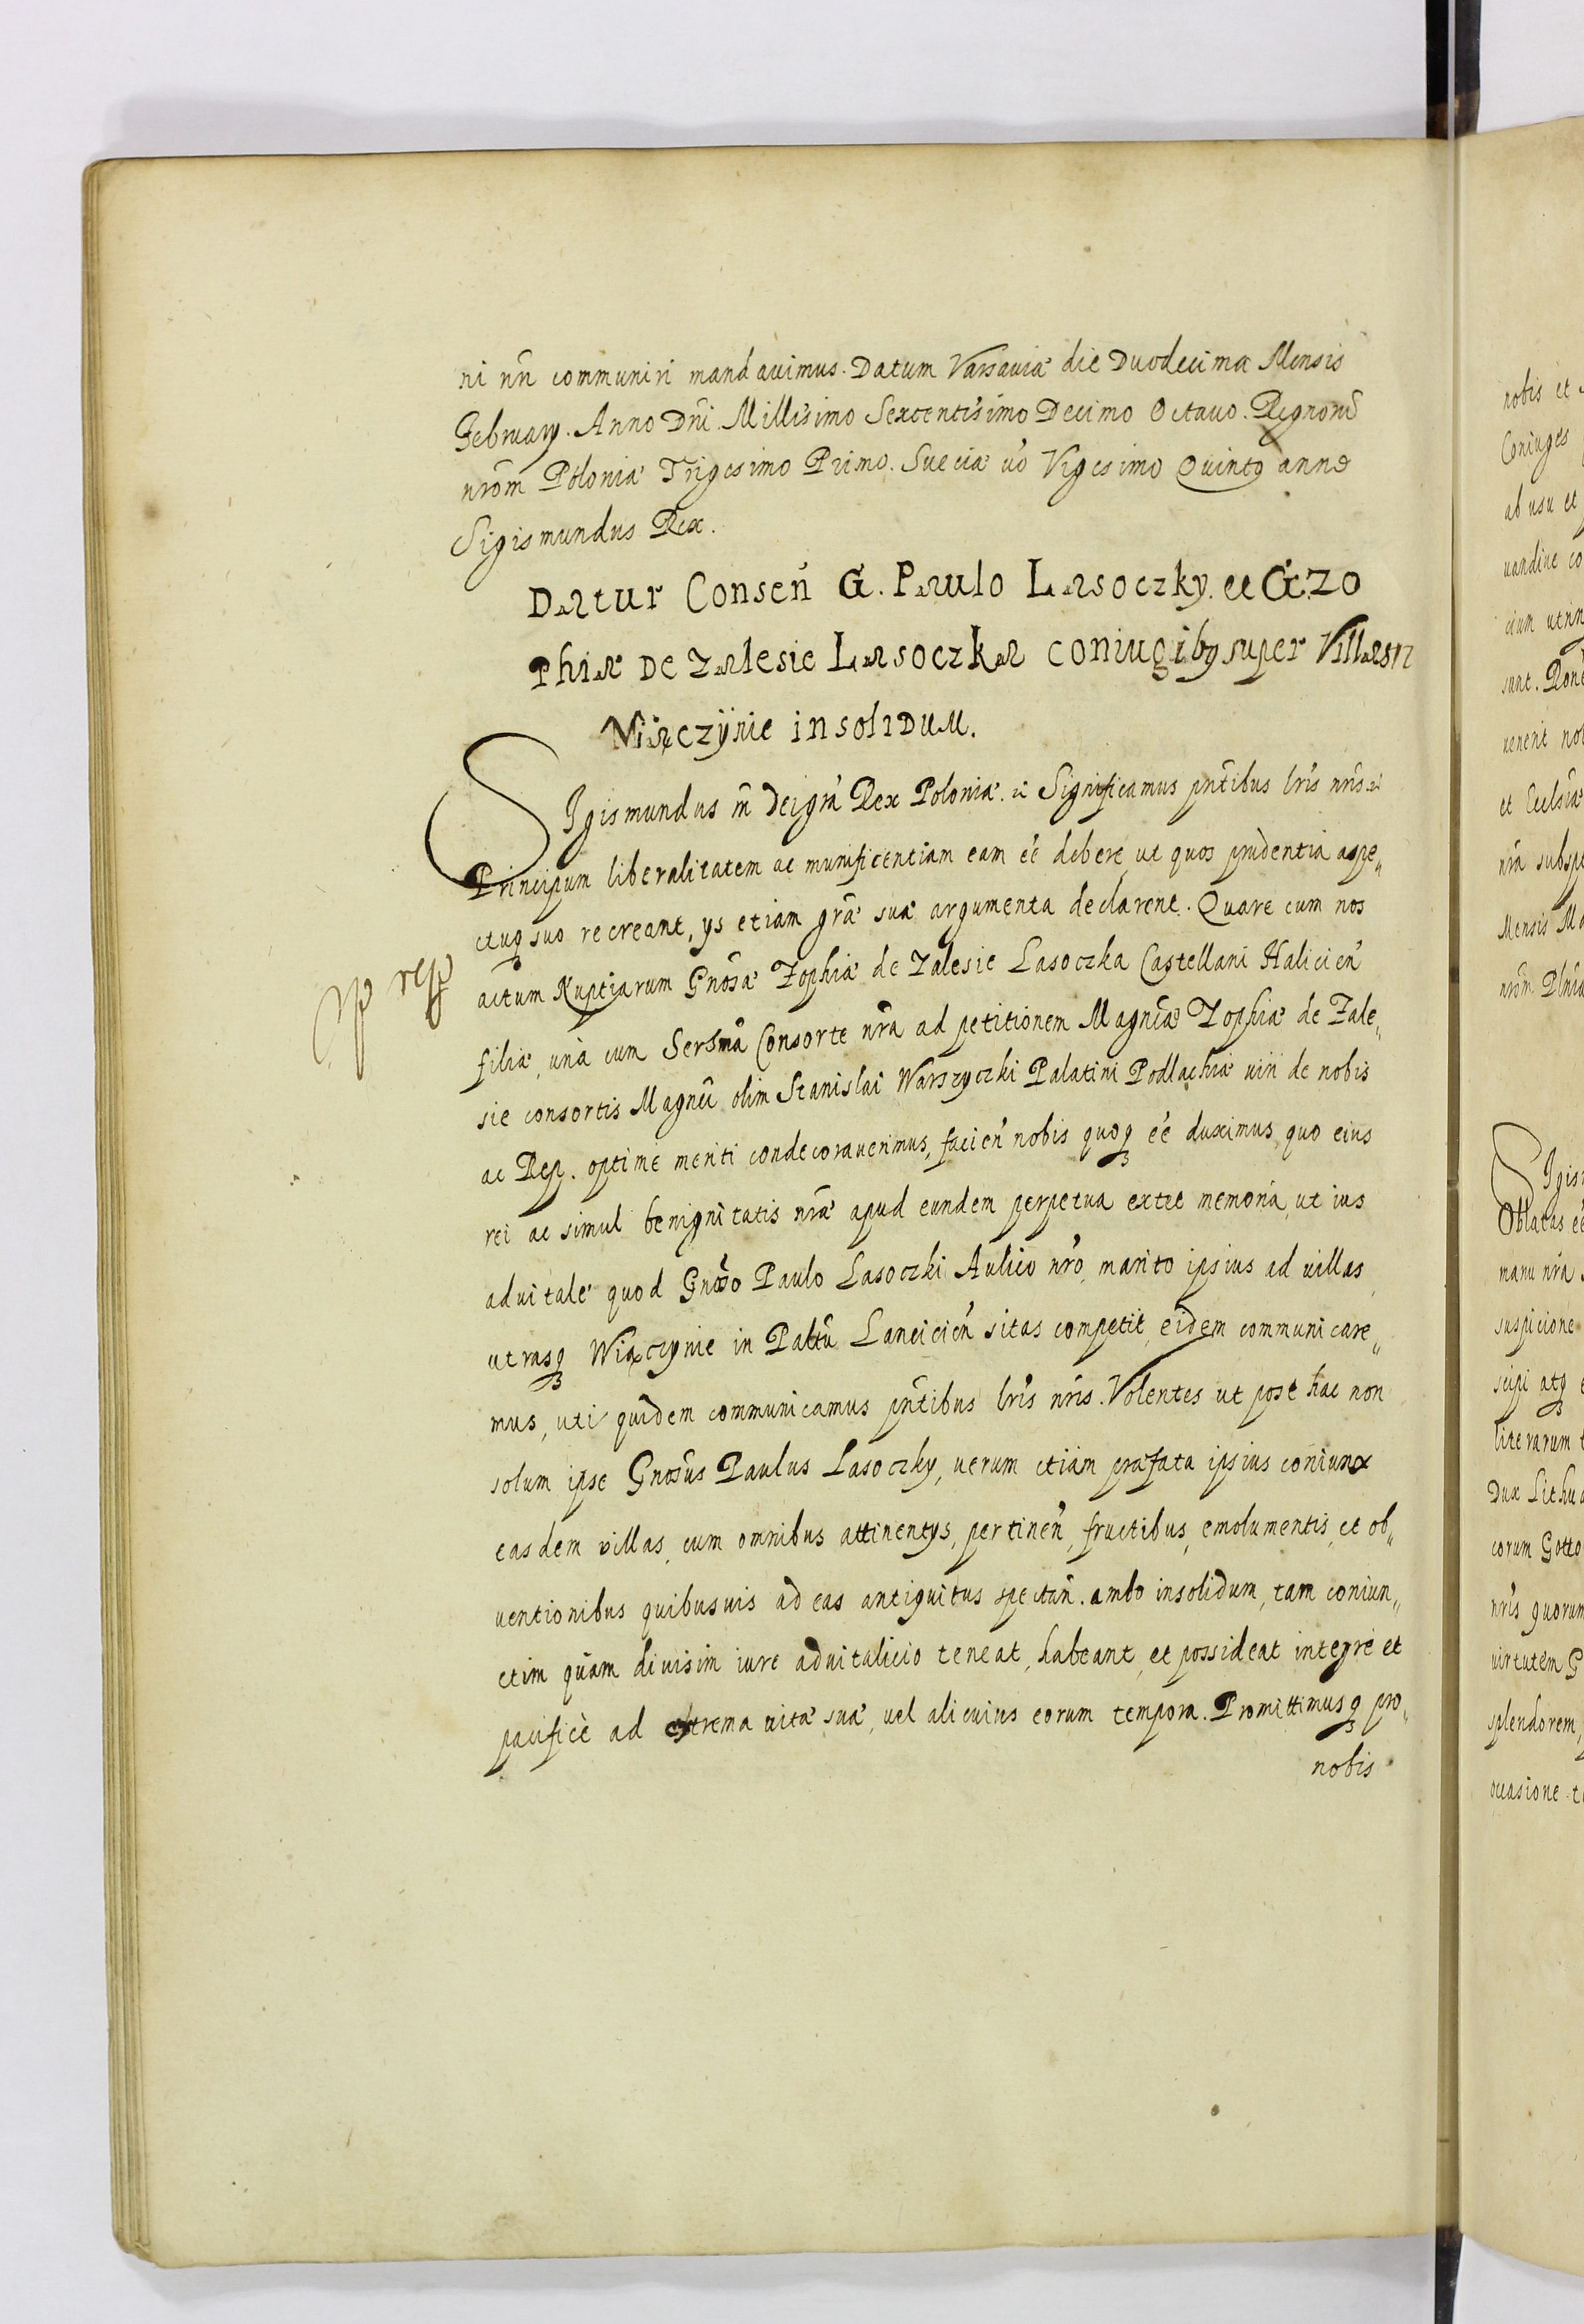 ni nri communiri mandauimus. Datum Varsauiæ die Duodecima Mensis
February. Anno Dni. Millesimo Sexcentesimo Decimo Octauo. Regnorũ
nrõm Poloniæ Trigesimo Primo. Sueciæ uo Vigesimo Quinto anno
Sigismundus Rex.
Datur Conseñ G. Paulo Lasoczky. et G. Zo
phiæ de Zalesie Lasoczka coniugibg super Villas
Wiączynie insolidum.
Sigismundus III Dei gra Rex Poloniæ. Significamus pntibus lris nris
Principum liberalitatem ac munificentiam eam eé debere, ut quos prudentia aspe„
ctuq suo recreant, ys etiam gratæ suæ argumenta declarent. Quare cum nos
actum Nuptiarum Gnosæ Zophiæ de Zalesie Lasoczka Castellani Halicien
filiæ, unà cum Sersma Consorte nra ad petitionem Magncæ Zophiæ de Zale„
sie consortis Magnci olim Stanislai Warszyczki Palatini Podlachiæ uiri de nobis
ac Rep. optime meriti condecorauerimus, facien nobis quoq eé duximus, quo eius
rei ac simul benignitatis nræ apud eundem perpetua extet memoria, ut ius
aduitale quod Gnoso Paulo Lasoczki Aulico nro, marito ipsius ad uillas
utrasq Wiączynie in Palttu Lancicien sitas competit, eidem communicare„
mus, uti quidem communicamus pntibus lris nris. Volentes ut post hac non
solum ipse Gnosus Paulus Lasoczky, uerum etiam præfata ipsius coniunx
easdem villas, cum omnibus attinentys, pertinen, fructibus, emolumentis, et ob„
uentionibus quibusuis ad eas antiquitus spectañ. ambo insolidum, tam coniun„
ctim quam diuisim iure aduitalicio teneat, habeant, et possideat integre et
pacificè ad extrema uitæ suæ, uel alicuius eorum tempora. Promittimusq pro„
nobis
nobis et
Coniuges
ab usu et
uandiue co
sunt.
et Ecclsiæ
nra subsp
Mensis Ma
Sigis
Oblatas eé
manu nra
suspicione
scipi atq
literarum
Dux Lithua
corum Gotto
nris quorum
uirtutem G
splendorem,
occasione